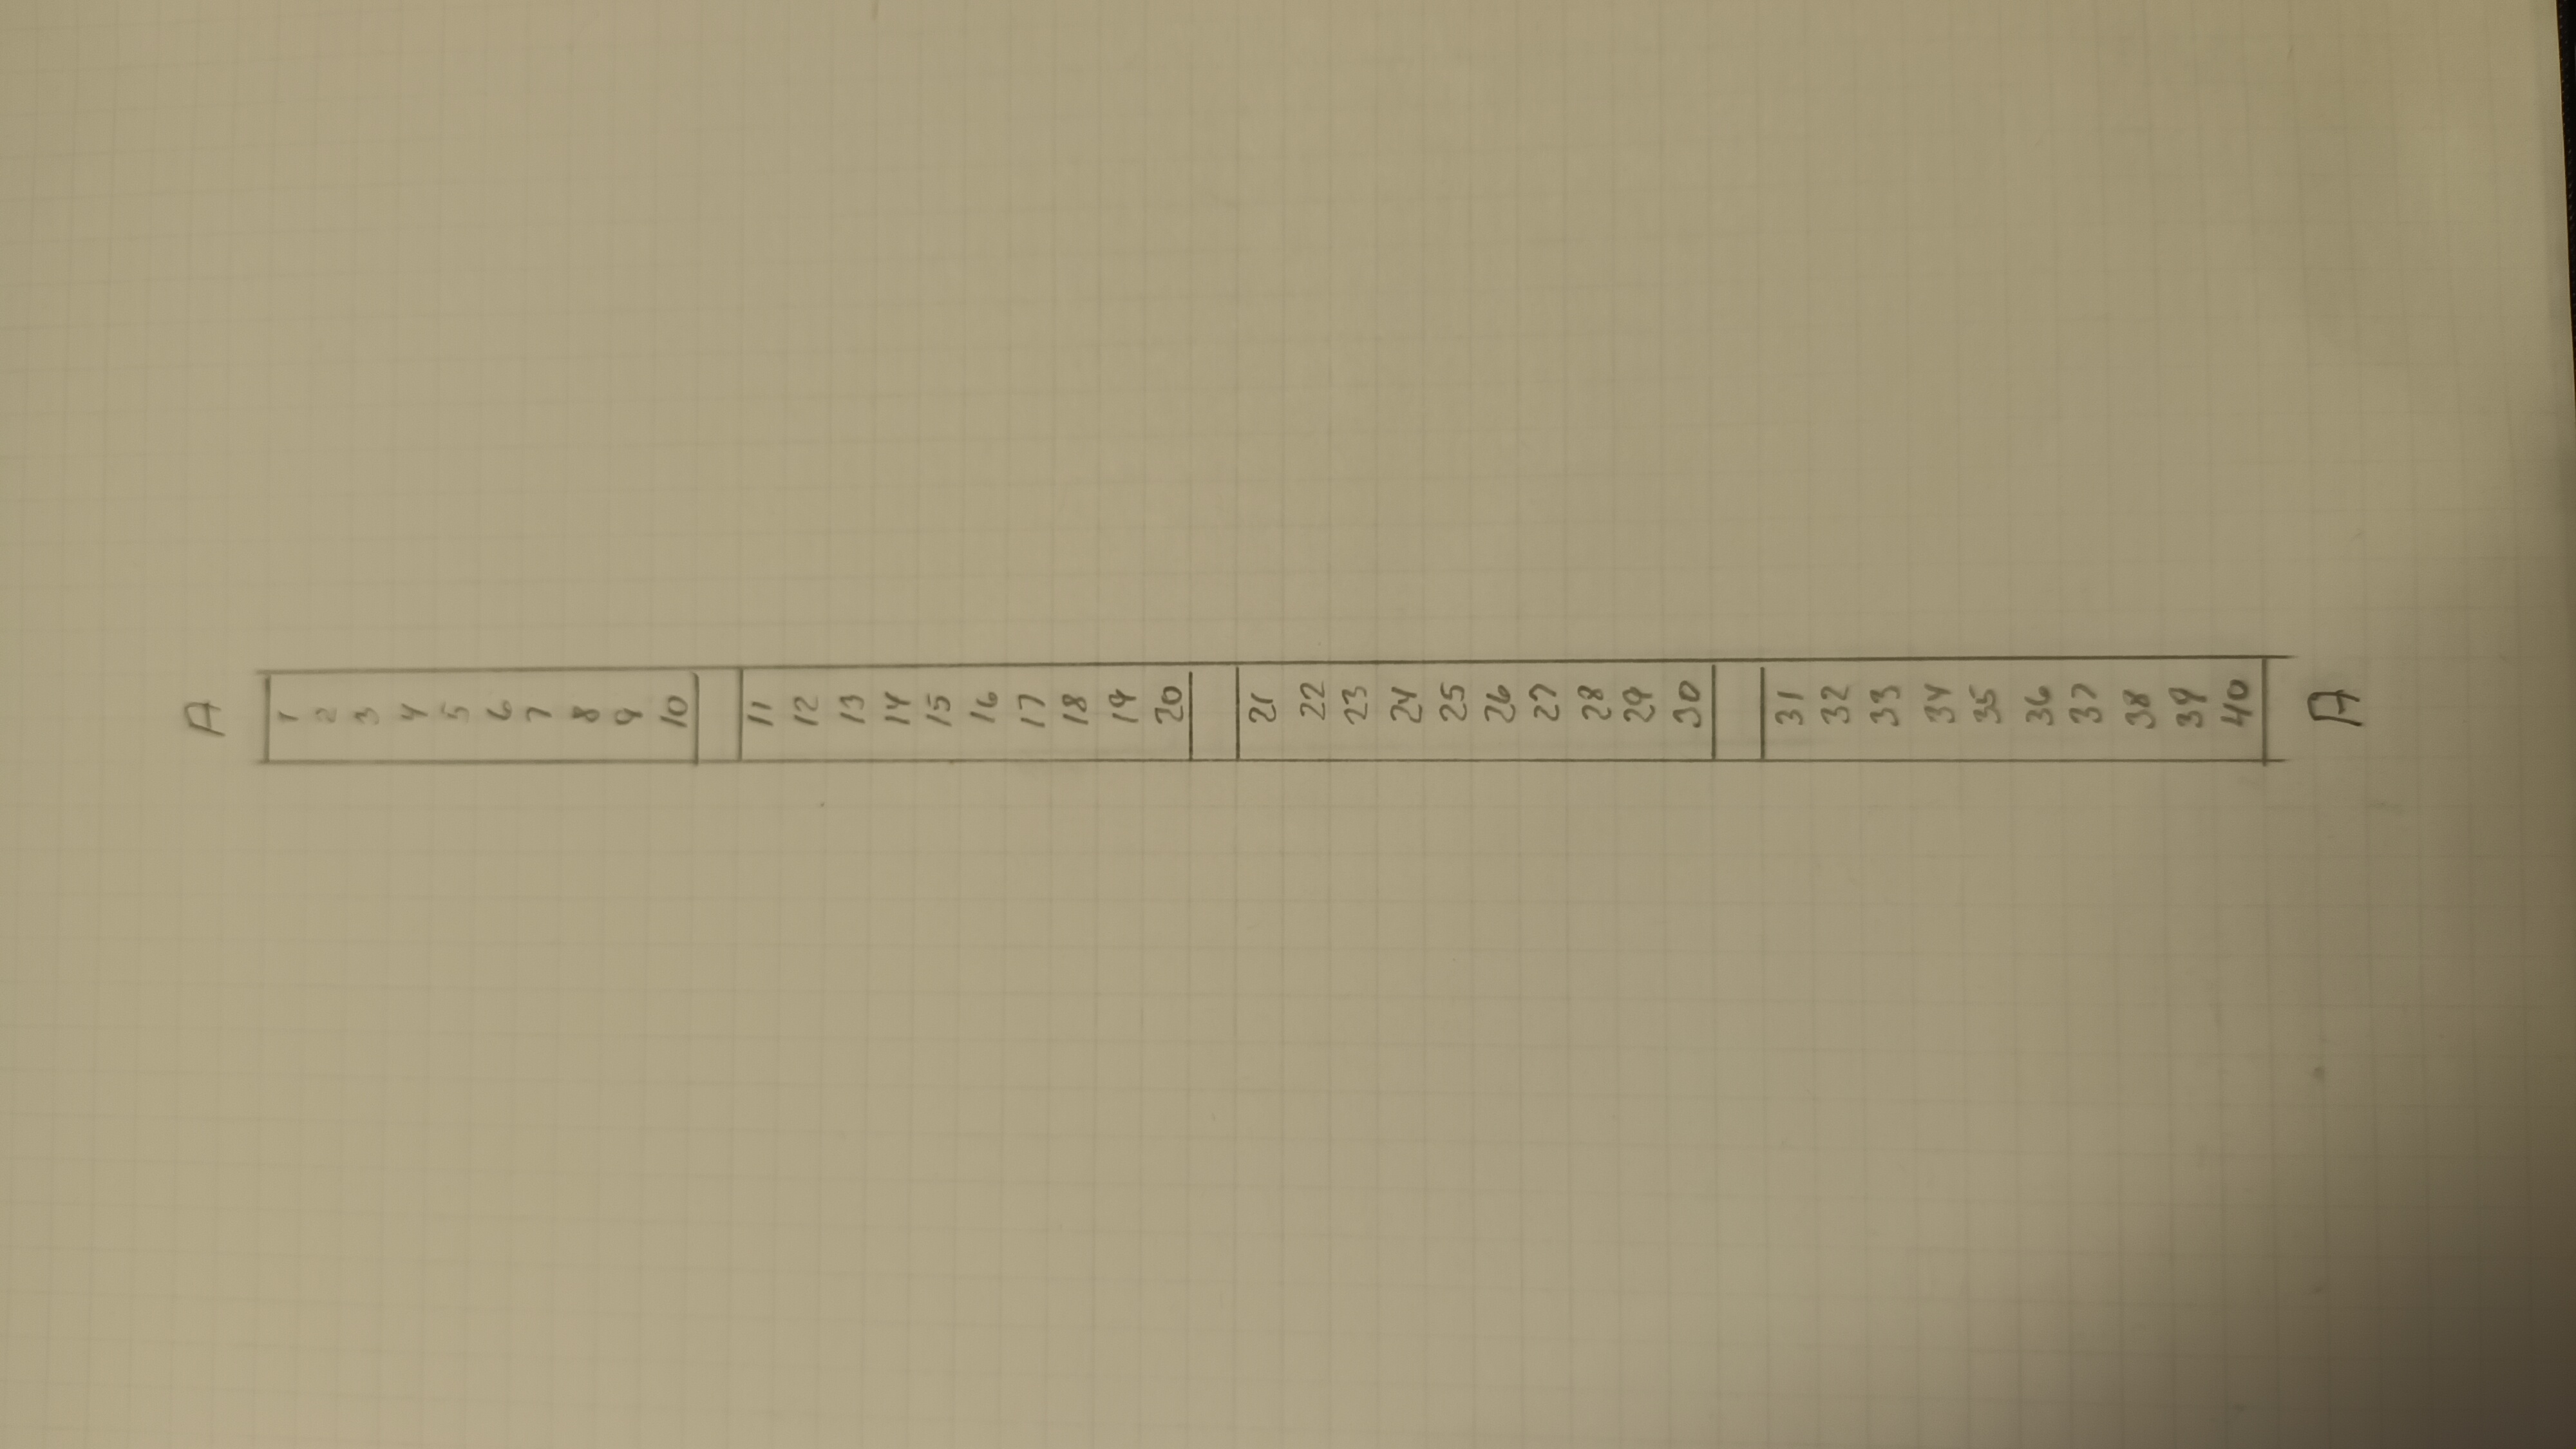 A
1
2
3
4
5
6
7
8
9
10
11
12
13
14
15
16
17
18
19
20
21
22
23
24
25
26
27
28
29
30
31
32
33
34
35
36
37
38
39
40
A